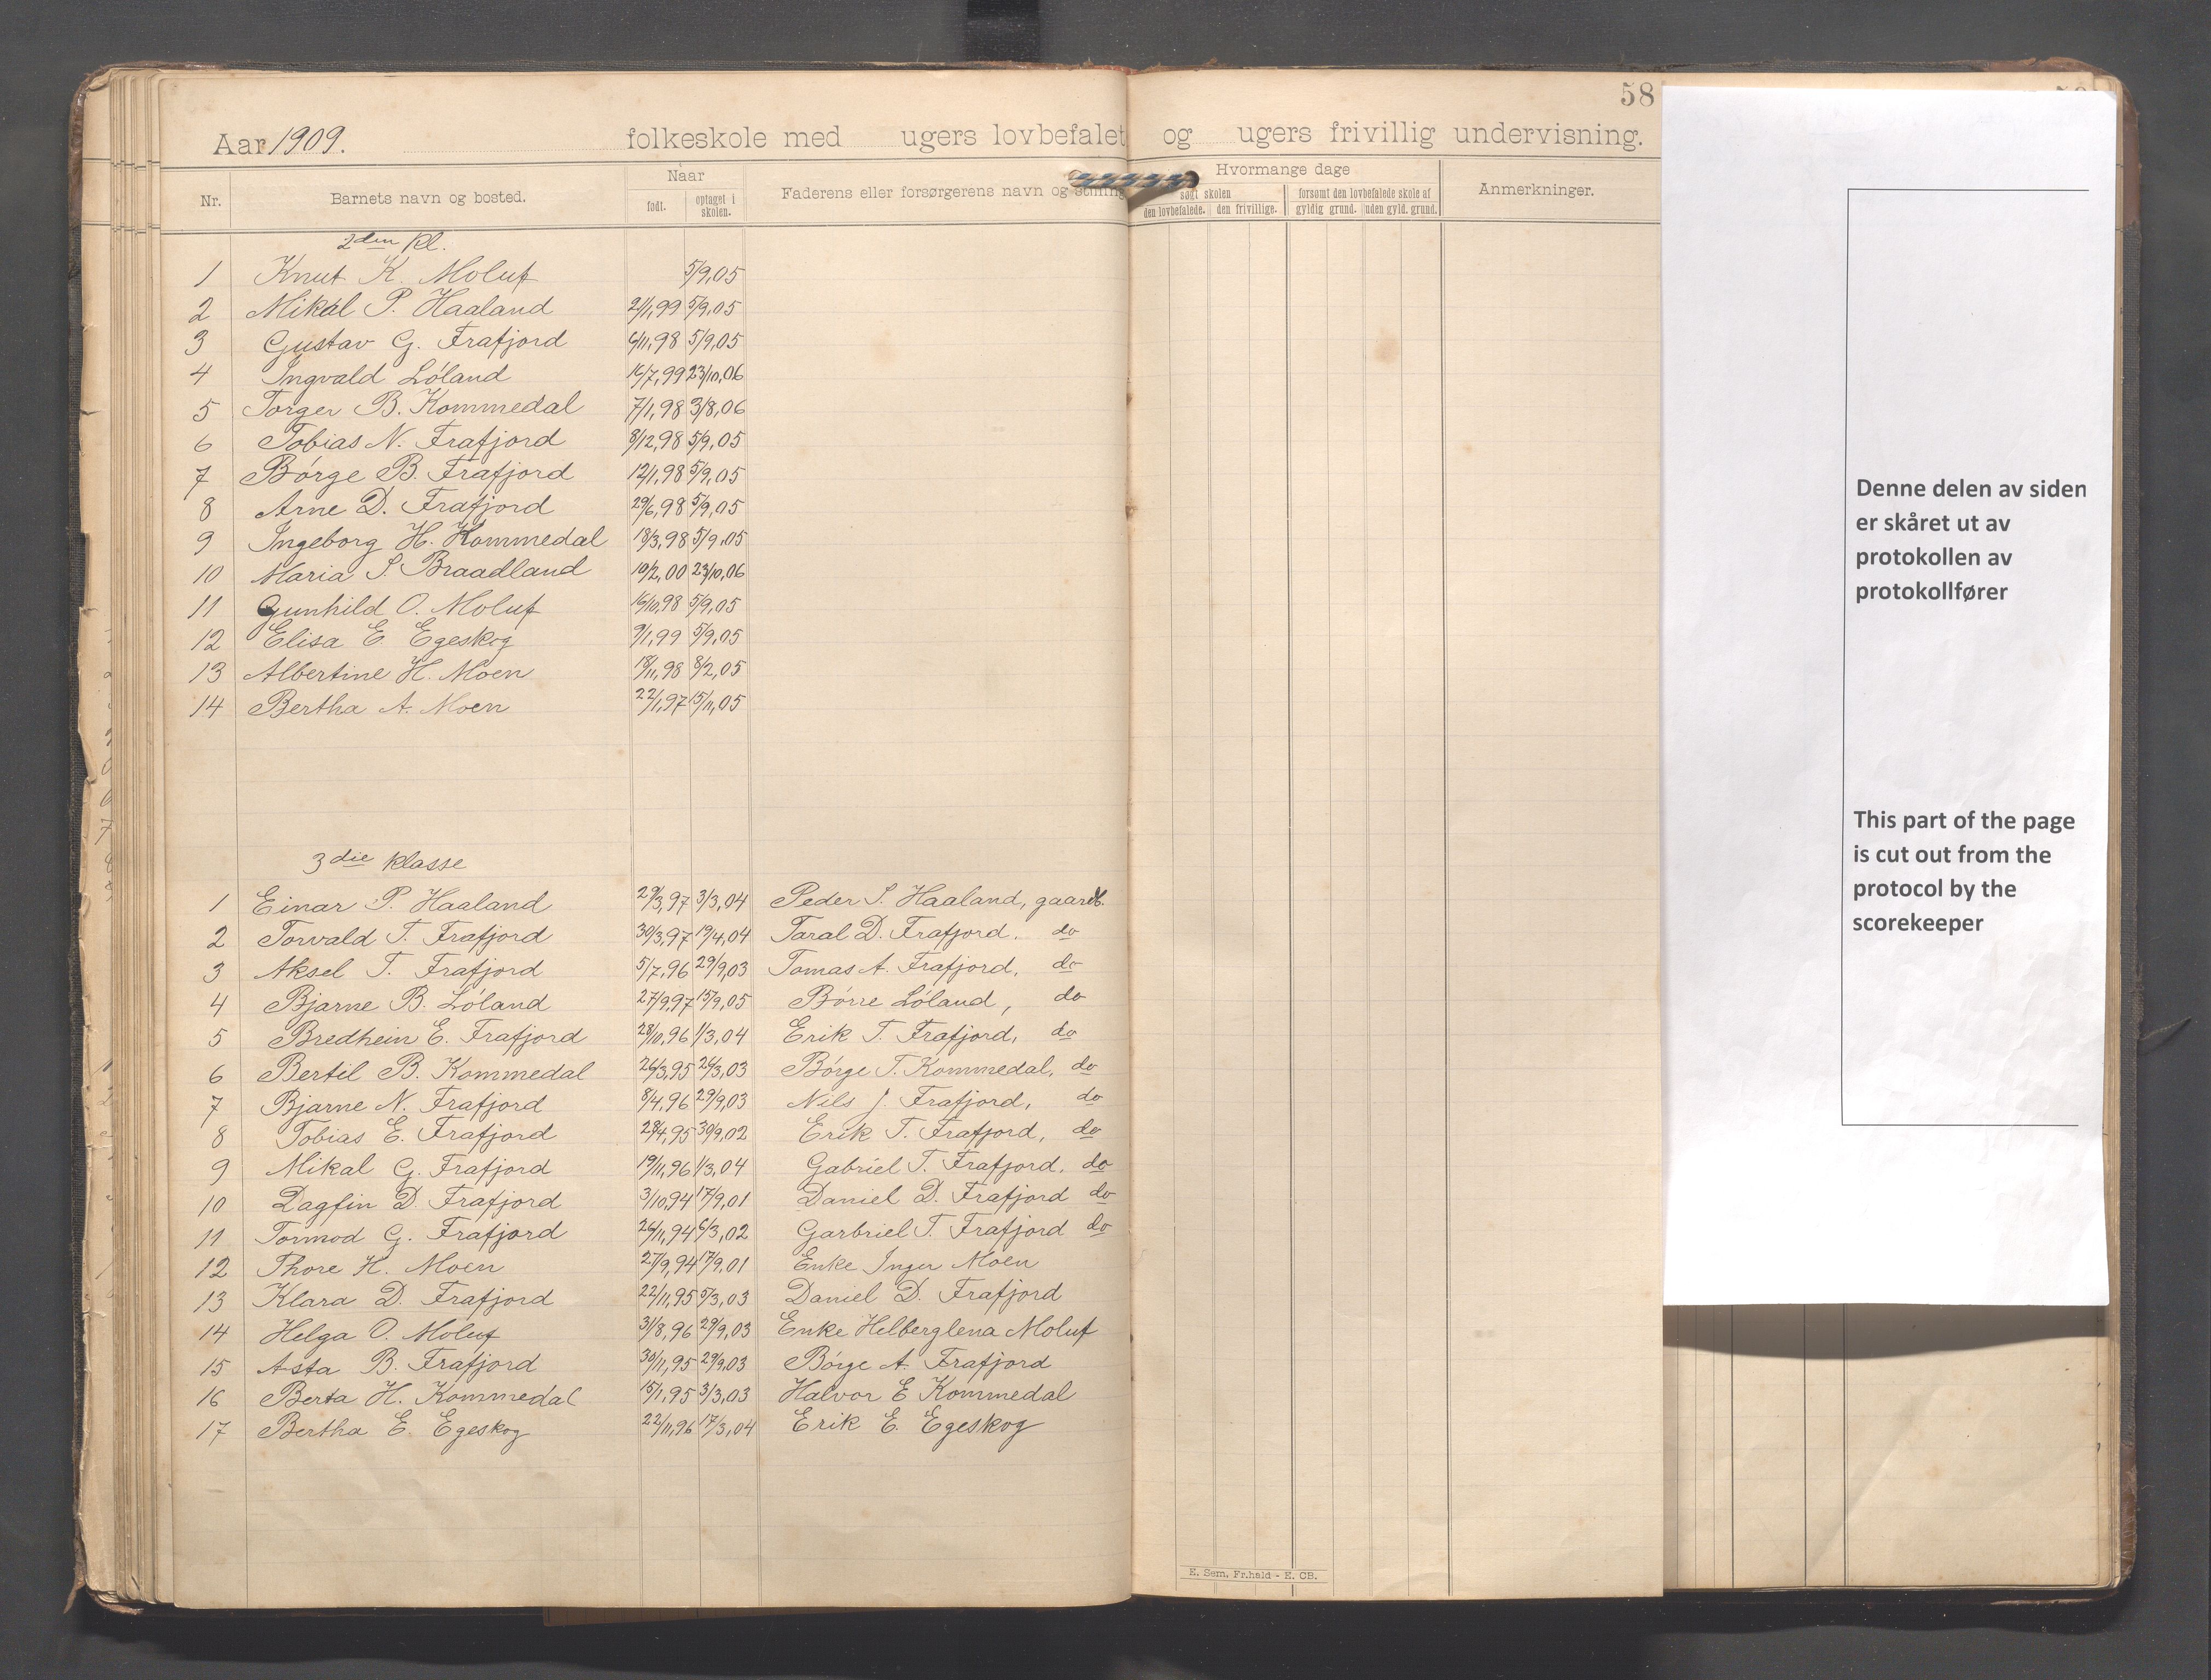 58
Aar 1909. folkeskole med ugers lovbefalet og ugers frivillig undervisning.
Nr. Barnets navn og bosted. Naar født. optaget i skolen. Faderens eller forsørgerens navn og stilling Hvormange dage søgt skolen den lovbefalede. den frivillige. forsømt den lovbefalede skole af gyldig grund. uden gyld. grund. Anmerkninger.
2den kl.
1 Knut K. Moluf 5/9,05
2 Mikal P. Haaland 21/1,99 5/9,05
3 Gustav G. Frafjord 6/11,98 5/9,05
4 Ingvald Lóland 16/7,99 23/10,06
5 Torger B. Kommedal 7/1,98 3/8,06
6 Tobias N. Frafjord 8/12,98 5/9,05
7 Bórge B. Frafjord 12/1,98 5/9,05
8 Arne D. Frafjord 29/6,98 5/9,05
9 Ingeborg H. Kommedal 18/3,98 5/9,05
10 Maria S. Braadland 19/2,00 23/10,06
11 Gunhild O. Moluf 16/10,98 5/9,05
12 Elisa E. Egeskog 9/1,99 5/9,05
13 Albertine H. Moen 18/11,98 8/2,05
14 Bertha A. Moen 22/1,97 15/11,05
3die klasse
1 Einar P. Haaland 29/3,97 3/3,04 Peder S. Haaland, gaardb.
2 Torvald T. Frafjord 30/3,97 19/4,04 Taral D. Frafjord. do
3 Aksel T. Frafjord 5/7,96 29/9,03 Tomas A. Frafjord, do
4 Bjarne B. Lóland 27/9,97 15/9,05 Bórre Lóland, do
5 Bredhein E. Frafjord 28/10,96 1/3,04 Erik T. Frafjord, do
6 Bertil B. Kommedal 26/3,95 26/3,03 Bórge T. Kommedal, do
7 Bjarne N. Frafjord 8/4,96 29/9,03 Nils J. Frafjord, do
8 Tobias E. Frafjord 28/4,95 30/9,02 Erik T. Frafjord, do
9 Mikal G. Frafjord 19/11,96 1/3,04 Gabriel T. Frafjord. do
10 Dagfin D. Frafjord 3/10,94 17/9,01 Daniel D. Frafjord do
11 Tormod G. Frafjord 26/11,94 6/3,02 Garbriel T. Frafjord do
12 Thore H. Moen 27/9,94 17/9,01 Enke Inger Moen
13 Klara D. Frafjord 22/11,95 5/3,03 Daniel D. Frafjord
14 Helga O. Moluf 31/8,96 29/9,03 Enke Helberglena Moluf
15 Asta B. Frafjord 30/11,95 29/9,03 Bórge A. Frafjord
16 Berta H. Kommedal 15/1,95 3/3,03 Halvor E Kommedal
17 Bertha E. Egeskog 22/11,96 17/3,04 Erik E. Egeskog
E. Sem. Fr.hald - E. CB.
Denne delen av siden
er skåret ut av
protokollen av
protokollfører
This part of the page
is cut out from the
protocol by the
scorekeeper